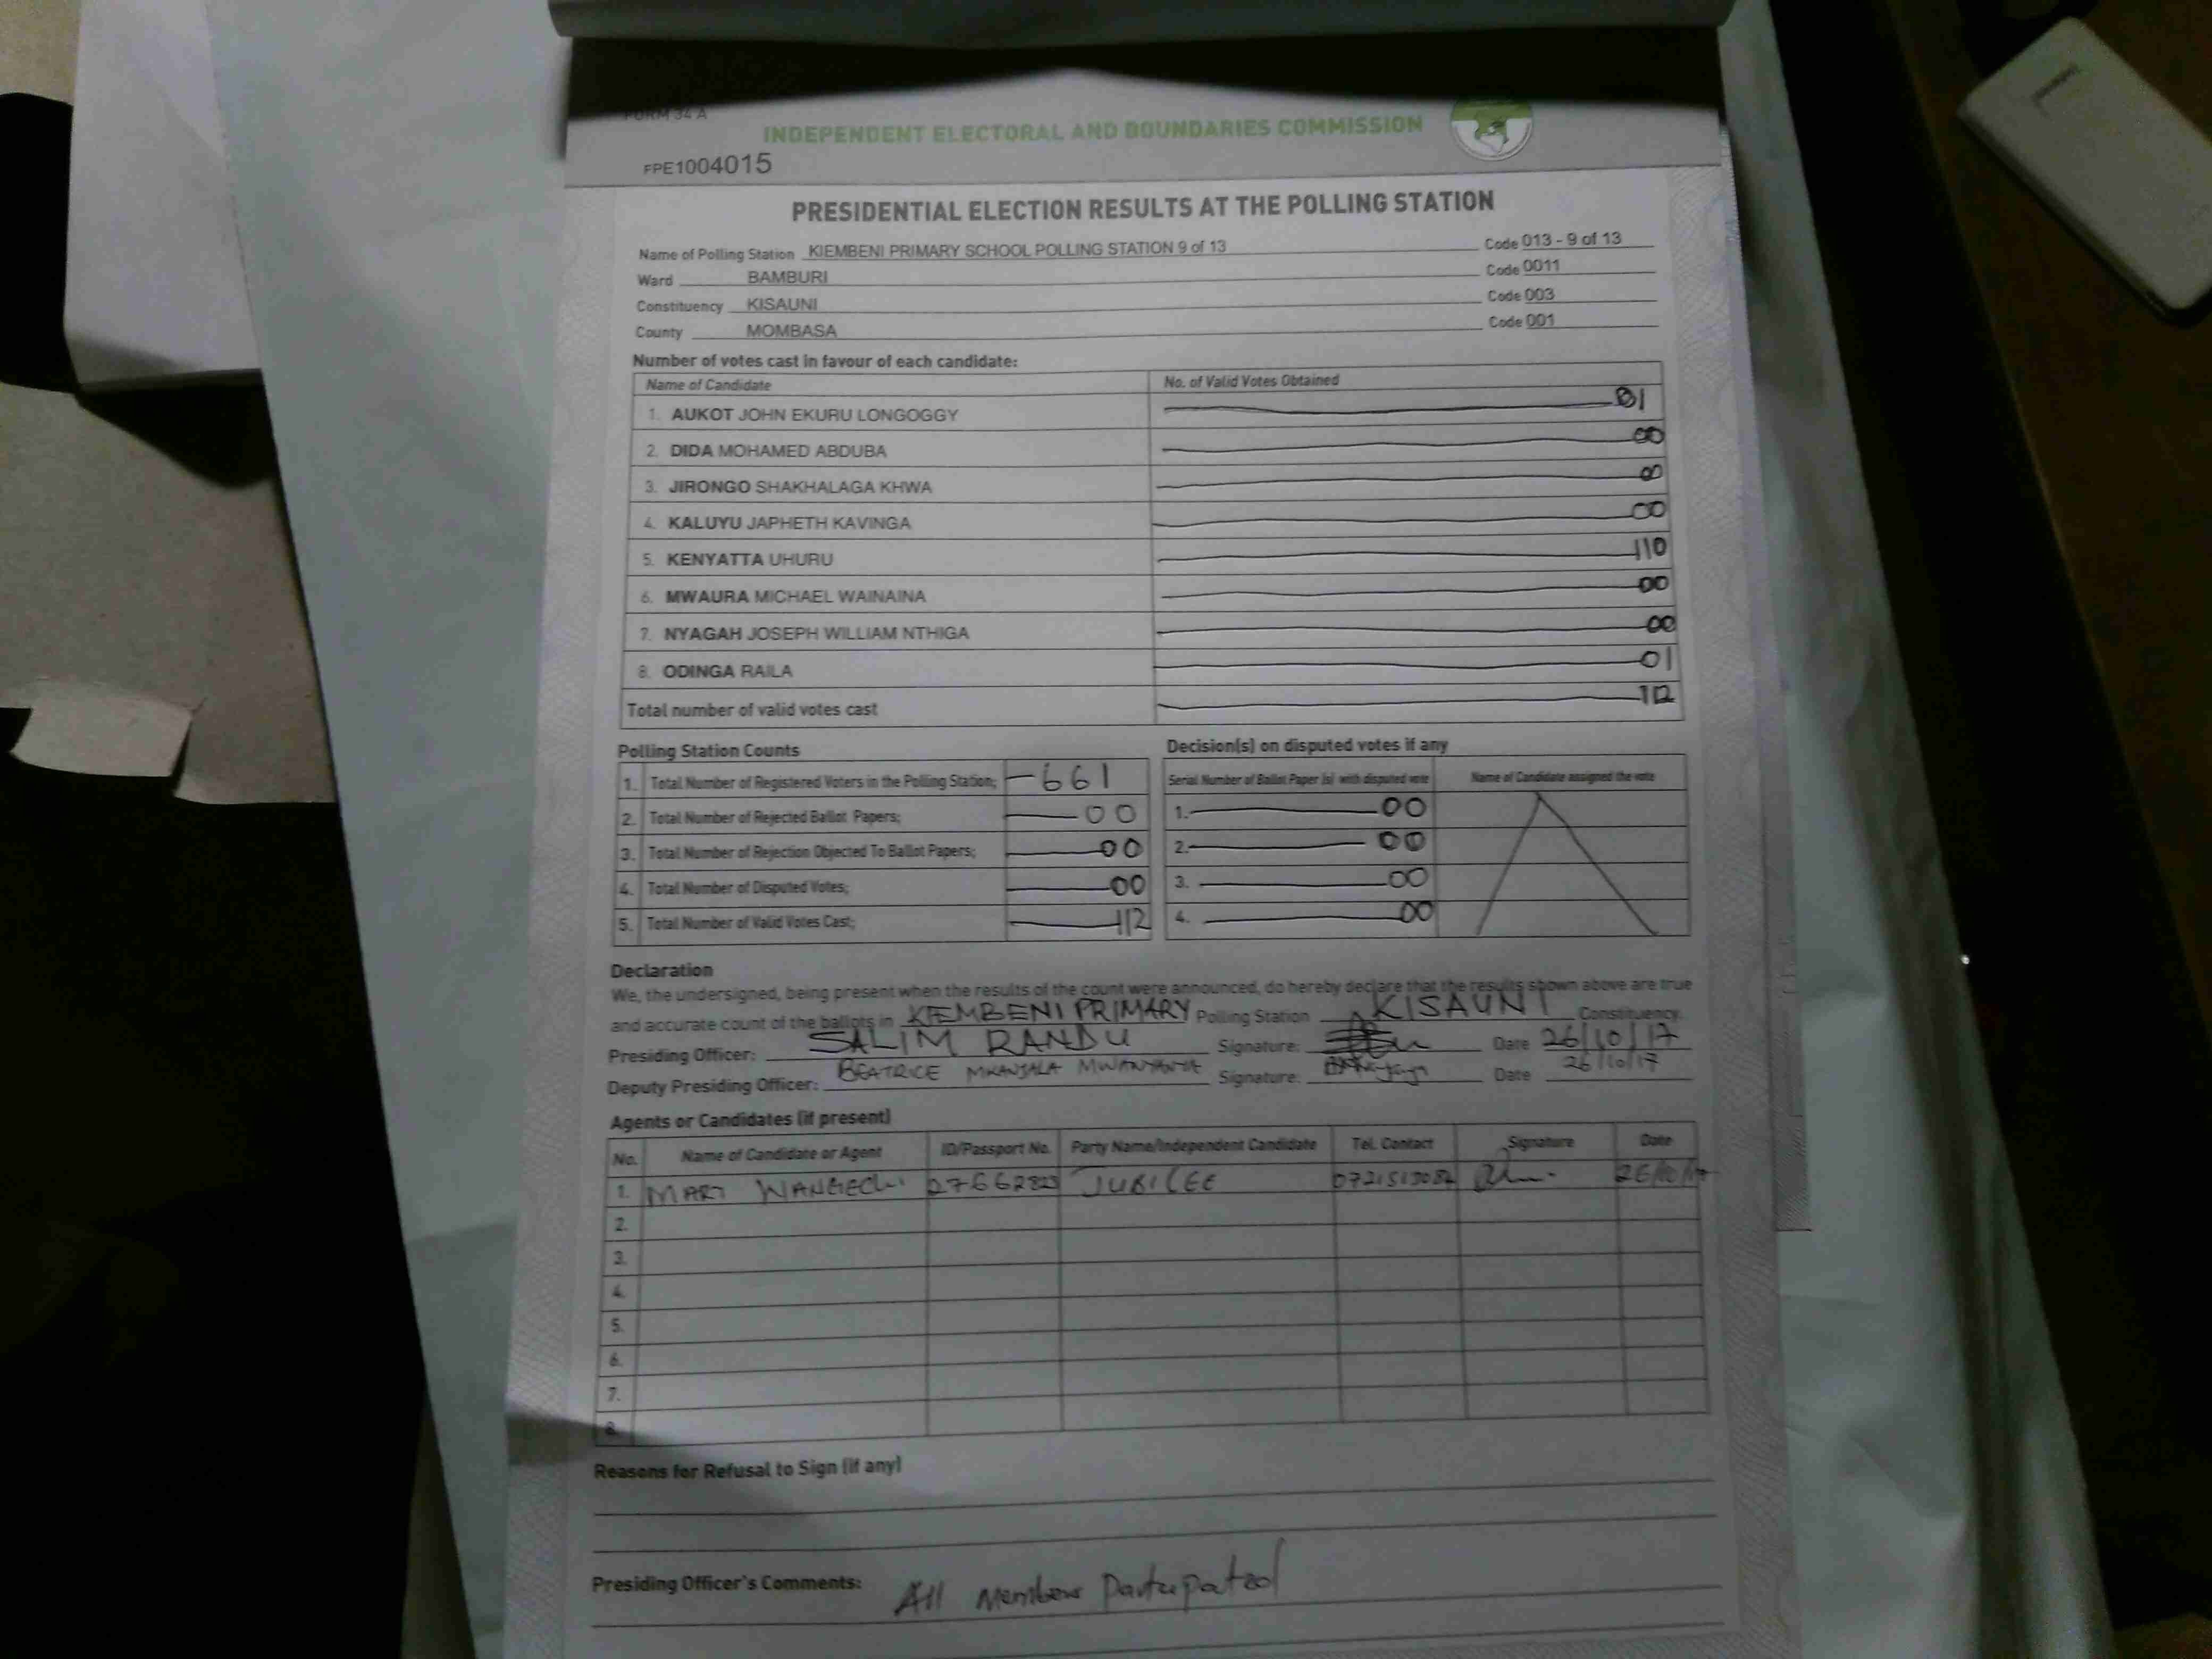 FORM 34 A
INDEPENDENT ELECTORAL AND BOUNDARIES COMMISSION
FPE1004015
PRESIDENTIAL ELECTION RESULTS AT THE POLLING STATION
Name of Polling Station KIEMBENI PRIMARY SCHOOL POLLING STATION 9 of 13 Code 013 - 9 of 13
Ward BAMBURI Code 0011
Constituency KISAUNI Code 003
County MOMBASA Code 001
Number of votes cast in favour of each candidate:
Name of Candidate No. of Valid Votes Obtained
1. AUKOT JOHN EKURU LONGOGGY 01
2. DIDA MOHAMED ABDUBA 00
3. JIRONGO SHAKHALAGA KHWA 00
4. KALUYU JAPHETH KAVINGA 00
5. KENYATTA UHURU 110
6. MWAURA MICHAEL WAINAINA 00
7. NYAGAH JOSEPH WILLIAM NTHIGA 00
8. ODINGA RAILA 01
Total number of valid votes cast 112
Polling Station Counts
1. Total Number of Registered Voters in the Polling Station; 661
2. Total Number of Rejected Ballot Papers; 00
3. Total Number of Rejection Objected To Ballot Papers; 00
4. Total Number of Disputed Votes; 00
5. Total Number of Valid Votes Cast; 112
Decision(s) on disputed votes if any
Serial Number of Ballot Paper (s) with disputed vote Name of Candidate assigned the vote
1. 00
2. 00
3. 00
4. 00
Declaration
We, the undersigned, being present when the results of the count were announced, do hereby declare that the results shown above are true
and accurate count of the ballots in KIEMBENI PRIMARY Polling Station KISAUNI Constituency.
Presiding Officer: SALIM RANDU Signature: Date 26/10/17
Deputy Presiding Officer: BEATRICE MKANJALA MWANYANYA Signature: Date 26/10/17
Agents or Candidates (if present)
No. Name of Candidate or Agent ID/Passport No. Party Name/Independent Candidate Tel. Contact Signature Date
1. MARY WANGECHI JUBILEE 26/10/17
2.
3.
4.
5.
6.
7.
8.
Reasons for Refusal to Sign (if any)
Presiding Officer's Comments: All Members Participated